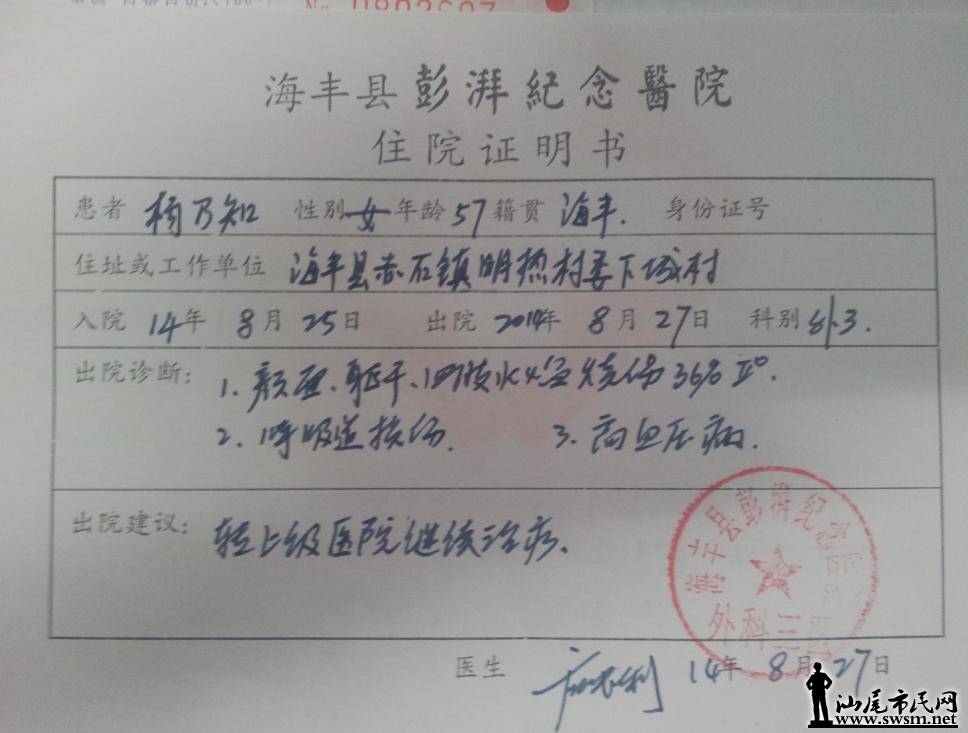 No 0802607
海丰县彭湃紀念醫院
住院证明书
患者 杨乃知 性别 女 年龄 57 籍贯 海丰. 身份证号
住址或工作单位 海丰县赤石镇明热村委下城村
入院 14年 8月 25日 出院 2014年 8月 27日 科别 外3.
出院诊断: 1. 颜面、躯干、四肢火焰烧伤36% II°.
2. 呼吸道损伤. 3. 高血压病.
出院建议: 转上级医院继续治疗.
海丰县彭湃纪念医院
外科三
医生 14年 8月 27日
汕尾市民网
www.swsm.net